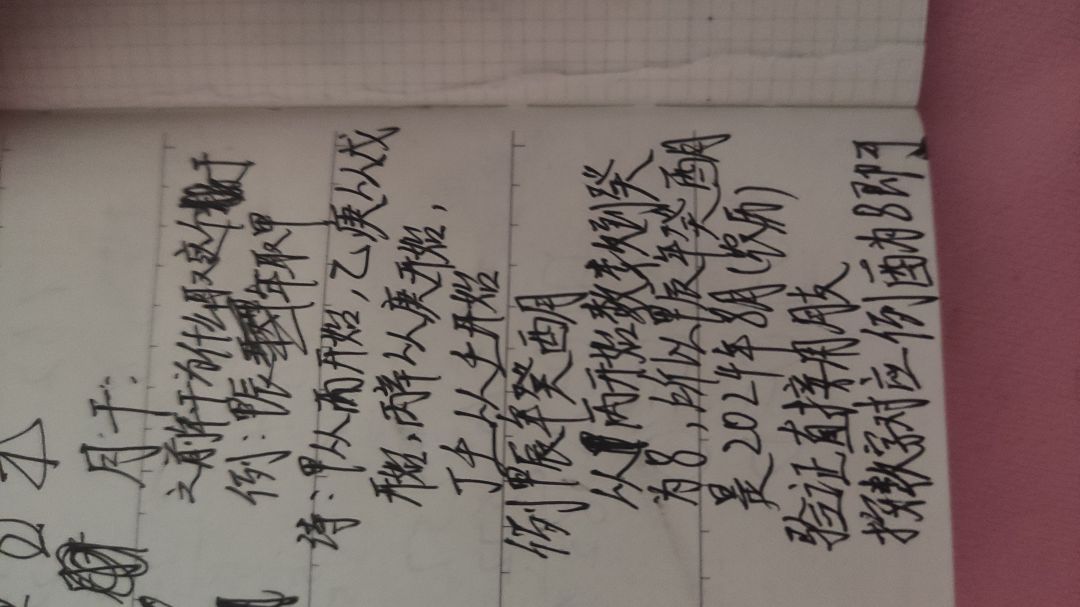 月干:
之前年干为什么用这个
例:甲辰年取甲
诗:甲从丙开始,乙庚从戊
开始,丙辛从庚开始,
丁壬从壬开始
例甲辰年癸酉月
从丙开始数老数到癸
为8,所以甲辰年癸酉月
是2024年8月(农历)
验证直接用月支
按数字对应例酉为8即可